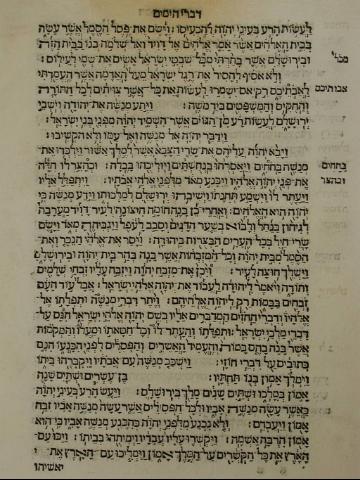 דברי הימים
לעשות הרע בעיני יהוה להכעיסו וישם את פסל הסמל אשר עשה
בבית האלהים אשר אמר אלהים אל דויד ואל שלמה בנו בבית הזה
ובירושלם אשר בחרתי מכל שבטי ישראל אשים את שמי לעילום
ולא אסיף להסיר את רגל ישראל מעל האדמה אשר העמדתי
לאבתיכם רק אם ישמרו לעשות את כל אשר צויתים לכל התורה
והחקים והמשפטים ביד משה ויתע מנשה את יהודה וישבי
ירושלם לעשות רע מן הגוים אשר השמיד יהוה מפני בני ישראל
וידבר יהוה אל מנשה ואל עמו ולא הקשיבו
ויבא יהוה עליהם את שרי הצבא אשר למלך אשור וילכדו את
מנשה בחחים ויאסרהו בנחשתים ויוליכהו בבלה וכהצר לו חלה
את פני יהוה אלהיו ויכנע מאד מלפני אלהי אבתיו ויתפלל אליו
ויעתר לו וישמע תחנתו וישיבהו ירושלם למלכותו וידע מנשה כי
יהוה הוא האלהים ואחרי כן בנה חומה חיצונה לעיר דויד מערבה
לגיחון בנחל ולבוא בשער הדגים וסבב לעפל ויגביהה מאד וישם
שרי חיל בכל הערים הבצרות ביהודה ויסר את אלהי הנכר ואת
הסמל מבית יהוה וכל המזבחות אשר בנה בהר בית יהוה ובירושלם
וישלך חוצה לעיר ויכן את מזבח יהוה ויזבח עליו זבחי שלמים
ותודה ויאמר ליהודה לעבוד את יהוה אלהי ישראל אבל עוד העם
זבחים בבמות רק ליהוה אלהיהם ויתר דברי מנשה ותפלתו אל
אלהיו ודברי החזים המדברים אליו בשם יהוה אלהי ישראל הנם על
דברי מלכי ישראל ותפלתו והעתר לו וכל חטאתו ומעלו והמקמות
אשר בנה בהם במות והעמיד האשרים והפסלים לפני הכנעו הנם
כתובים על דברי חוזי וישכב מנשה עם אבתיו ויקברהו ביתו
וימלך אמון בנו תחתיו בן עשרים ושתים שנה
אמון במלכו ושתים שנים מלך בירושלם ויעש הרע בעיני יהוה
כאשר עשה מנשה אביו ולכל הפסילים אשר עשה מנשה אביו זבח
אמון ויעבדם ולא נכנע מלפני יהוה כהכנע מנשה אביו כי הוא
אמון הרבה אשמה ויקשרו עליו עבדיו וימיתהו בביתו ויכו עם
הארץ את כל הקשרים על המלך אמון וימליכו עם הארץ את
יאשיהו
אבותיכם
בחחים
וכהצר